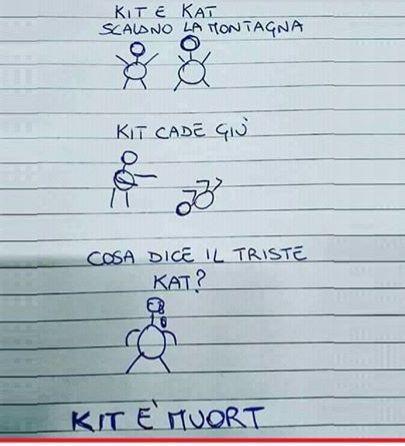 KIT E KAT
SCALANO LA MONTAGNA
KIT CADE GIÙ
COSA DICE IL TRISTE
KAT?
KIT E' MUORT